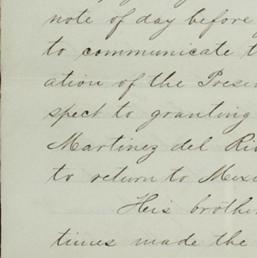 note of day before
to communicate t
ation of the Prese
spect to granting
Martinez del Ri
to return to Mexi
His brothe
times made the